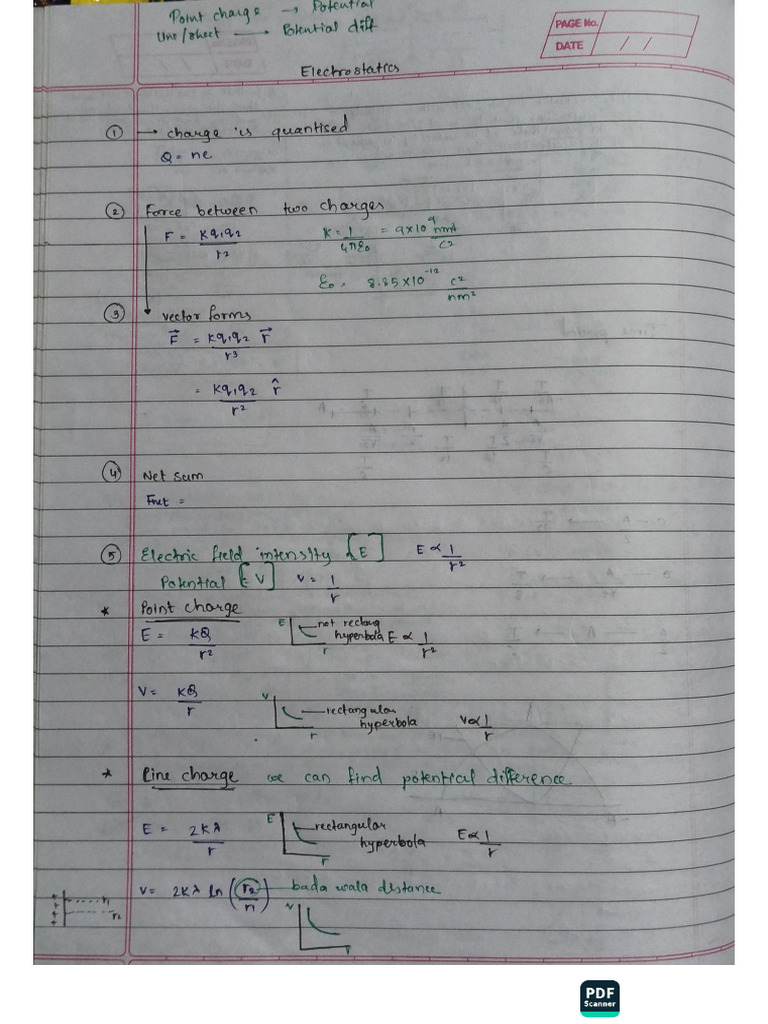 Point charge → Potential
Line/sheet → Potential diff
PAGE No.
DATE / /
Electrostatics
① → charge is quantised
Q = ne
② Force between two charges
F = Kq₁q₂/r² K = 1/4πε₀ = 9×10⁹ nm²/C²
ε₀ = 8.85×10⁻¹² C²/nm²
③ vector forms
F⃗ = Kq₁q₂/r³ r⃗
= Kq₁q₂/r² r̂
④ Net sum
Fnet =
⑤ Electric field intensity [E] E ∝ 1/r²
Potential [V] V = 1/r
* Point charge
E = KQ/r² E r not rectang hyperbola E ∝ 1/r²
V = KQ/r V r rectangular hyperbola V ∝ 1/r
* Line charge we can find potential difference
E = 2Kλ/r E r rectangular hyperbola E ∝ 1/r
V = 2Kλ ln (r₂/r₁) bada wala distance
+ + + + r₁ r₂
V r
PDF
Scanner